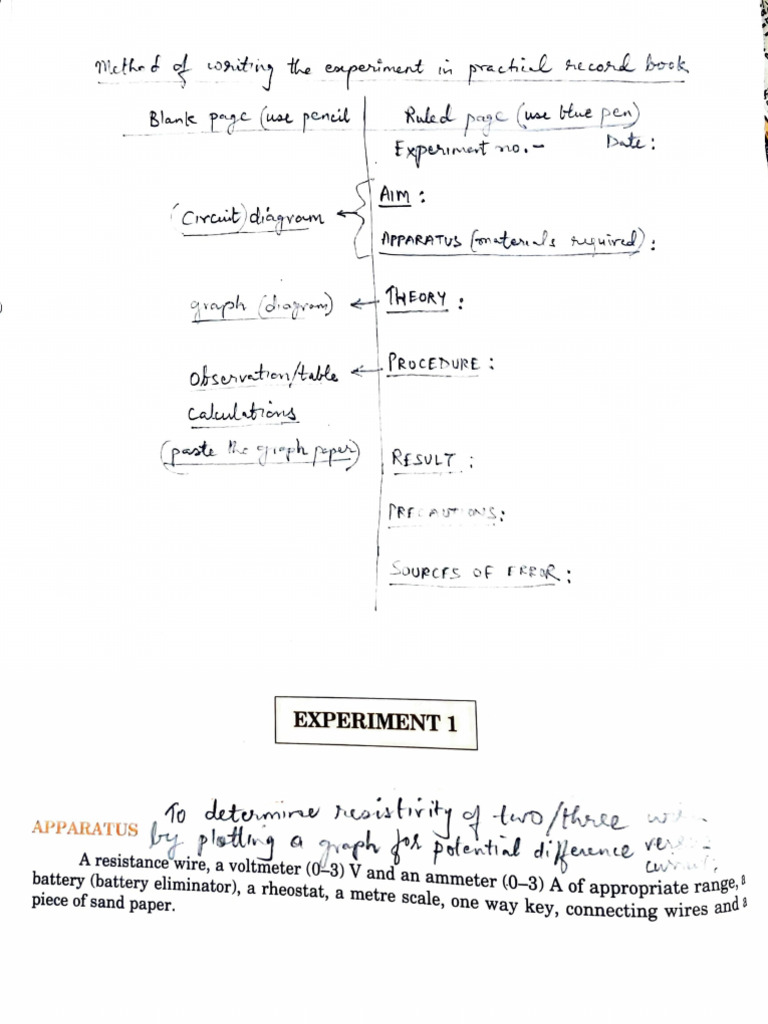 Method of writing the experiment in practical record book
Blank page (use pencil
Ruled page (use blue pen)
Experiment no.- Date:
AIM:
(Circuit) diagram
APPARATUS (materials required):
graph (diagram)
THEORY:
Observation/table
PROCEDURE:
Calculations
(paste the graph paper)
RESULT:
PRECAUTIONS:
SOURCES OF ERROR:
EXPERIMENT 1
To determine resistivity of two/three
APPARATUS
by plotting a graph for potential difference
A resistance wire, a voltmeter (0–3) V and an ammeter (0–3) A of appropriate range, a
battery (battery eliminator), a rheostat, a metre scale, one way key, connecting wires and a
piece of sand paper.